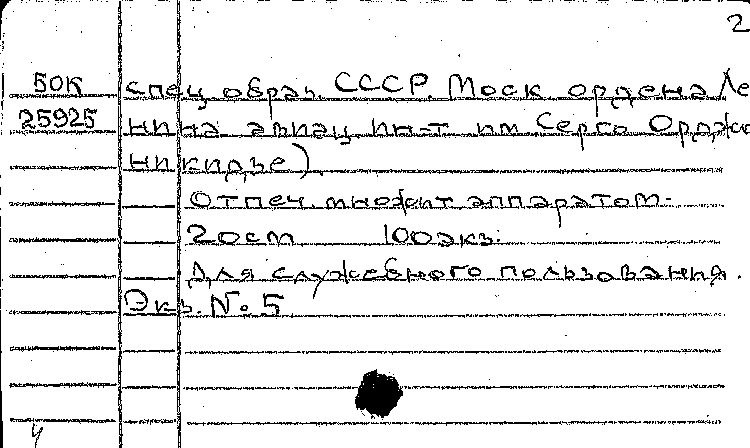 2
50К спец образ. СССР. Моск ордена Ле
25925 нина авиац ин-т им Серго Орджо
никидзе)
Отпеч. множит аппаратом.
20см 100экз.
Для служебного пользования.
Экз. № 5